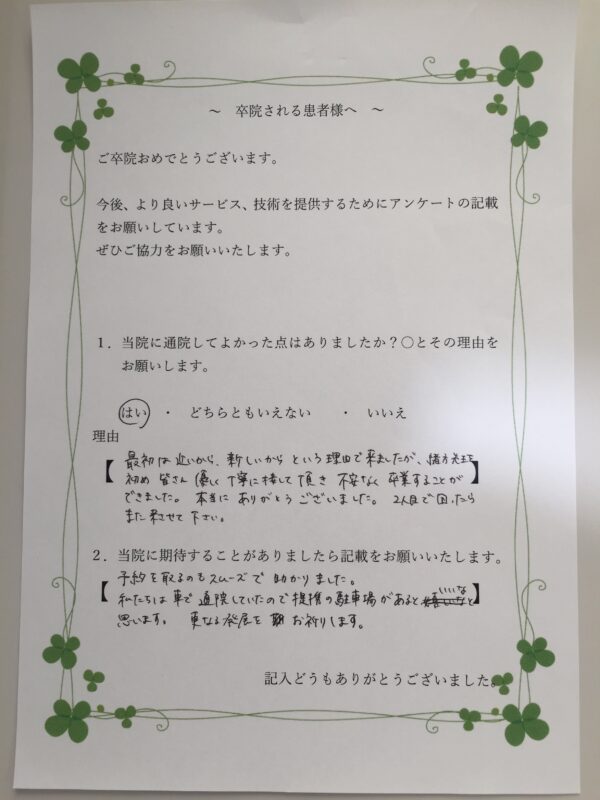 ～　卒院される患者様へ　～
ご卒院おめでとうございます。
今後、より良いサービス、技術を提供するためにアンケートの記載
をお願いしています。
ぜひご協力をお願いいたします。
１．当院に通院してよかった点はありましたか？○とその理由を
お願いします。
はい　・　どちらともいえない　・　いいえ
理由
【 最初は近いから、新しいから という理由で来ましたが、緒方先生を
初め 皆さん 優しく 丁寧に接して 頂き 不安なく 卒業することが 】
できました。 本当に ありがとう ございました。 2人目で 困ったら
また 来させて 下さい。
２．当院に期待することがありましたら記載をお願いいたします。
予約を取るのもスムーズで 助かりました。
【 私たちは 車で 通院していたので 提携の駐車場があると いいなと 】
思います。 更なる発展を お祈りします。
記入どうもありがとうございました。